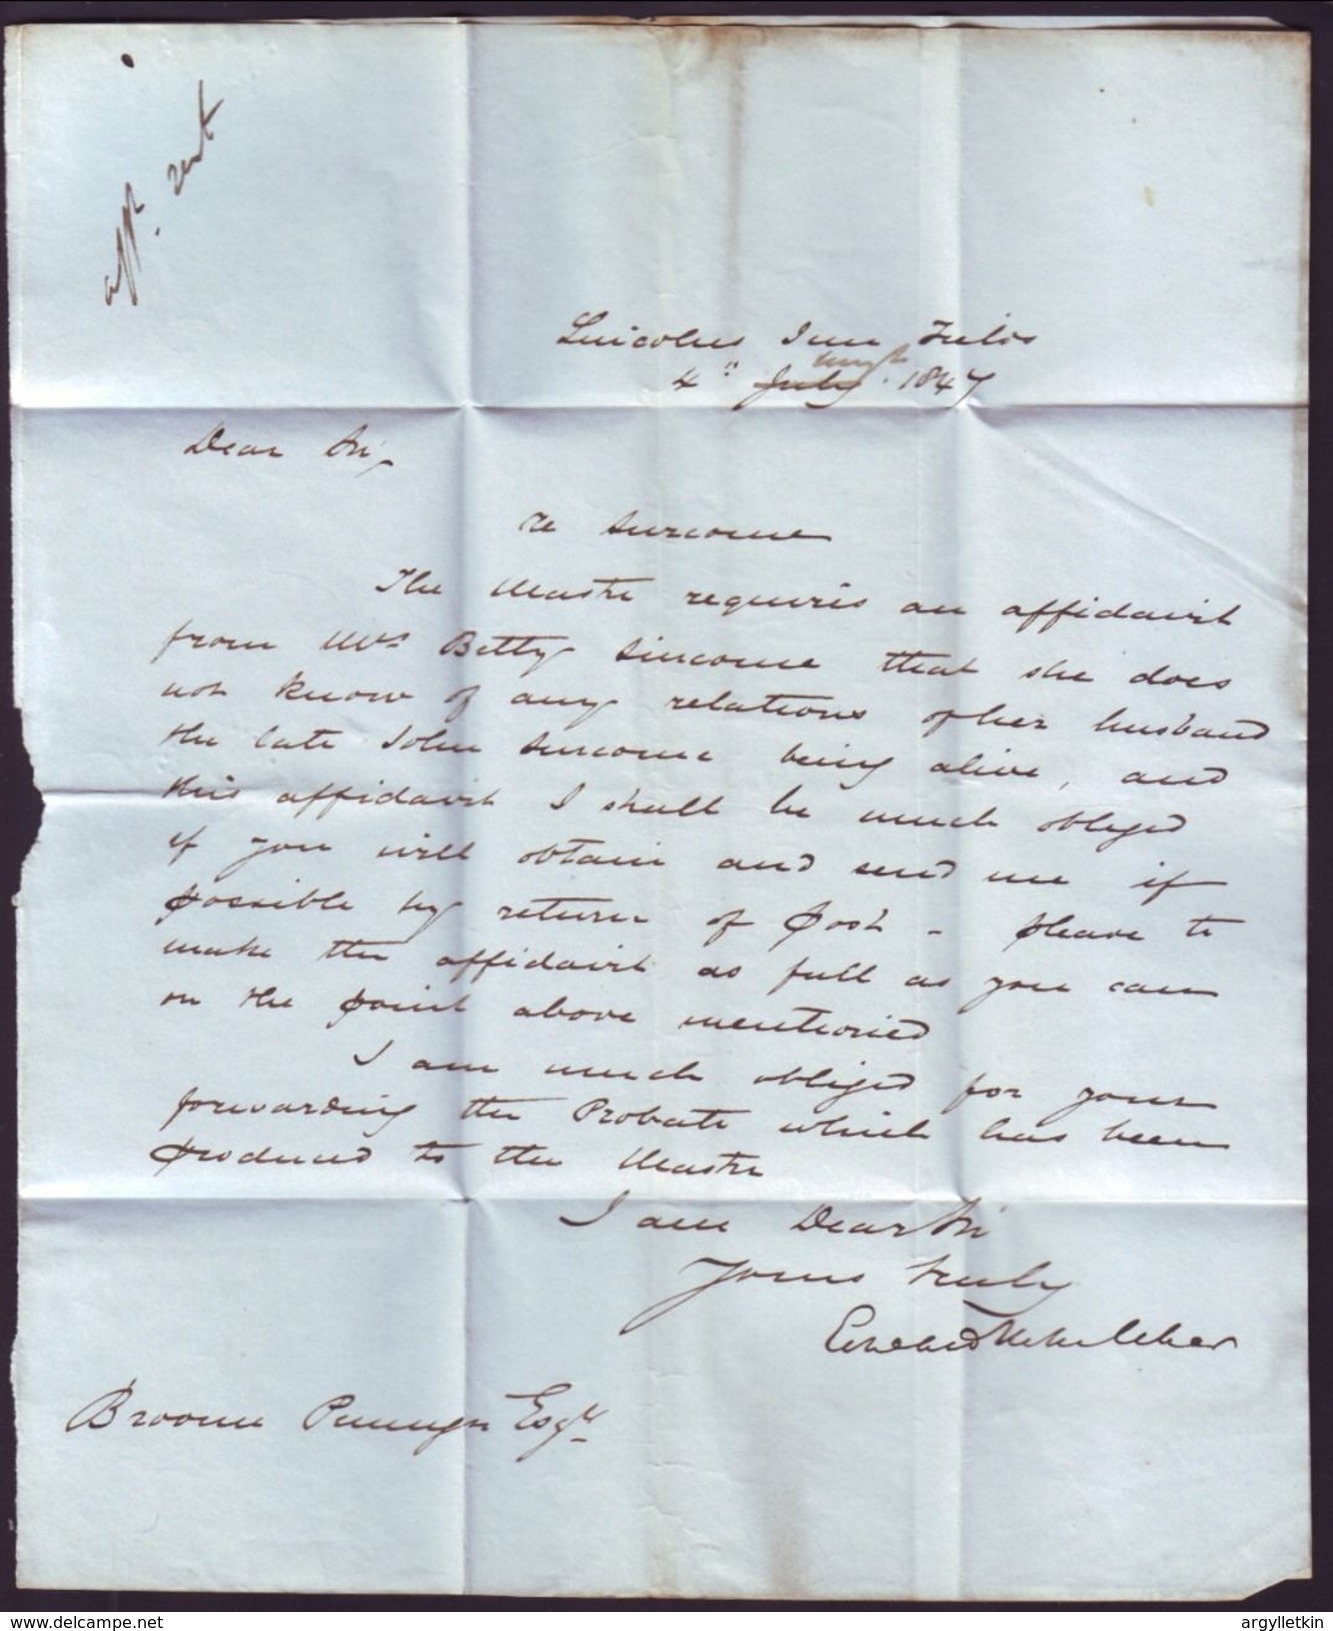 aff. sent
Lincolns Inn Fields
4" July Augt 1847
Dear Sir,
re Surcome
The Master requires an affidavit
from Mrs Betty Surcome that she does
not know of any relations of her husband
the late John Surcome being alive, and
this affidavit I shall be much obliged
if you will obtain and send me if
possible by return of Post - please to
make the affidavit as full as you can
on the point above mentioned
I am much obliged for your
forwarding the Probate which has been
produced to the Master
I am Dear Sir
Yours truly
Edward
Broome Esqre
www.delcampe.net
argylletkin